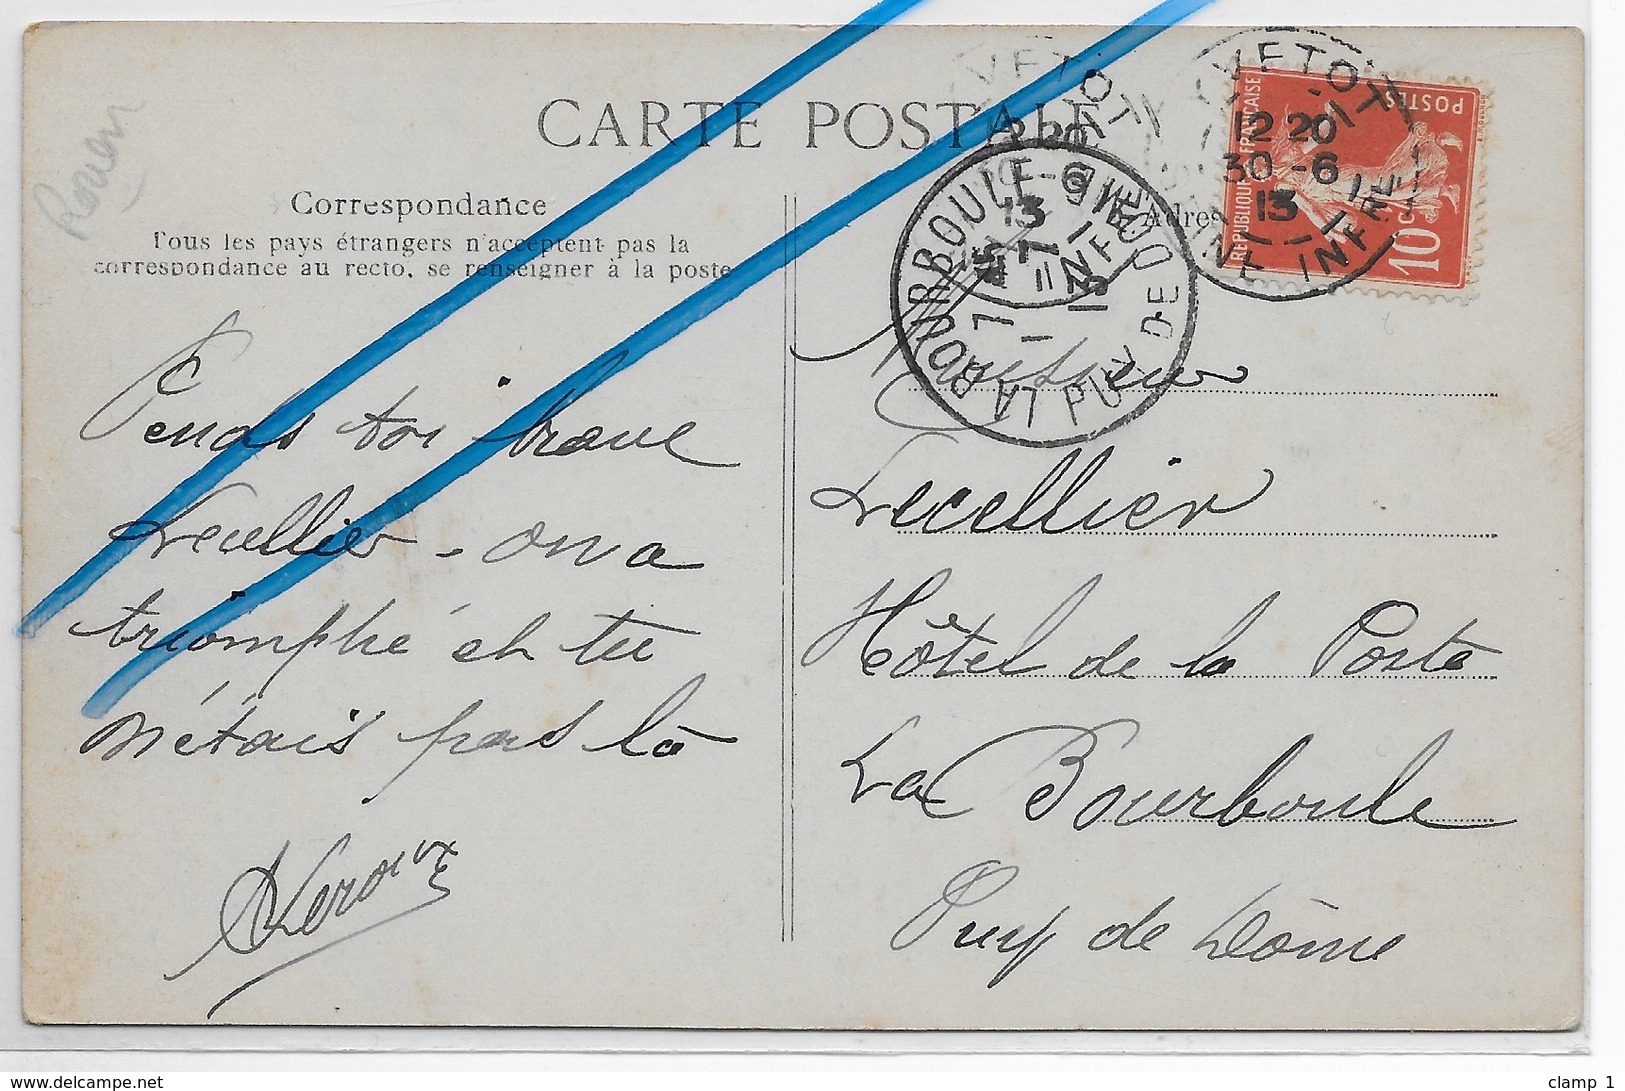 CARTE POSTALE
Rouen
Correspondance
Tous les pays étrangers n'acceptent pas la
correspondance au recto, se renseigner à la poste
Adres
YVETOT
12 20
30 -6
13
INFRE
YVETOT
20
13
INFRE
LA BOURBOULE
PUY DE DOME
7
13
REPUBLIQUE FRANÇAISE
POSTES
10c
Pends toi brave
Lecellier - on a
triomphé et tu
n'étais pas là
Leroux
Monsieur
Lecellier
Hôtel de la Poste
La Bourboule
Puy de Dôme
www.delcampe.net
clamp 1